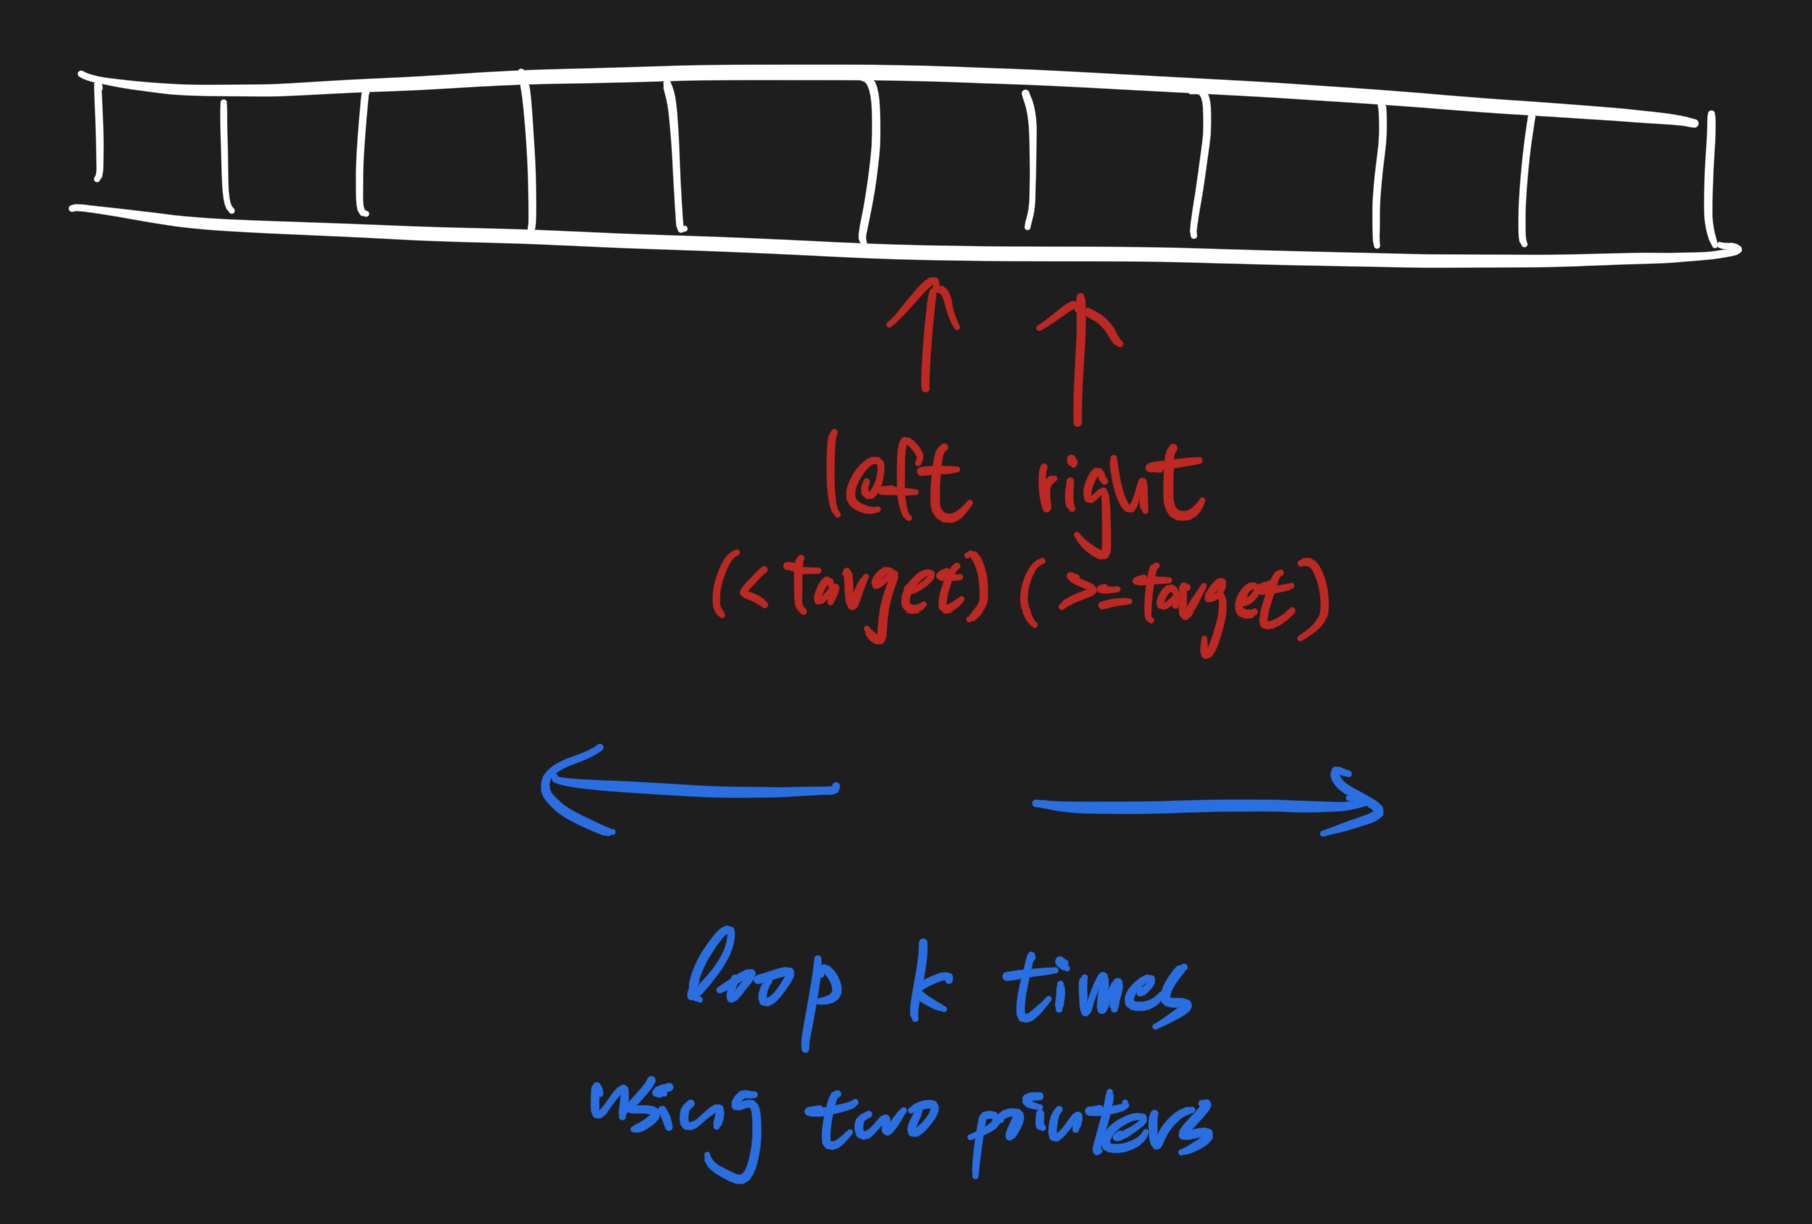 left right
(< target) (>= target)
loop k times
using two pointers